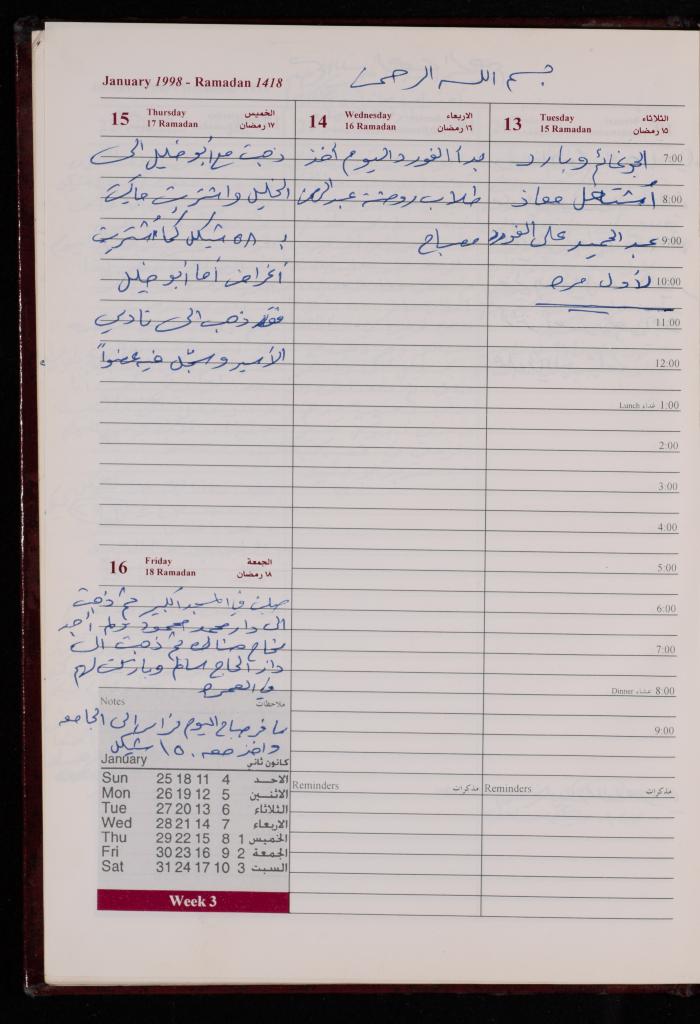 بسم الله الرحمن
January 1998 - Ramadan 1418
13 Tuesday الثلاثاء
15 Ramadan ١٥ رمضان
7:00 الجو غائم وبارد
8:00 أشتغل معاذ
9:00 عبد الحميد على الفورد
10:00 لأول مره
11:00
12:00
Lunch غداء 1:00
2:00
3:00
4:00
5:00
6:00
7:00
Dinner عشاء 8:00
9:00
Reminders مذكرات
14 Wednesday الاربعاء
16 Ramadan ١٦ رمضان
بدأ الفورد اليوم أخذ
طلاب روضة عبد الرحمن
مصباح
Reminders مذكرات
15 Thursday الخميس
17 Ramadan ١٧ رمضان
ذهبت مع أبو خليل الى
الخليل واشتريت جاكيت
بـ ٥٨ شيكل كما أشتريت
أغراض أما أبو خليل
فقد ذهب الى نادي
الأسير وسجّل فيه عضواً
16 Friday الجمعة
18 Ramadan ١٨ رمضان
صليت في المسجد الكبير ثم ذهبت
الى دار محمد محمود ولم أجد
هناك ثم ذهبت الى
دار الحاج سالم وباركت لهم
في العمره
Notes ملاحظات
سافر صباح اليوم فراس الى الجامعه
واخذ معه ١٥٠ شيكل
January كانون ثاني
Sun 25 18 11 4 الاحـد
Mon 26 19 12 5 الاثنـين
Tue 27 20 13 6 الثلاثاء
Wed 28 21 14 7 الاربعاء
Thu 29 22 15 8 1 الخميس
Fri 30 23 16 9 2 الجمعة
Sat 31 24 17 10 3 السبت
Week 3